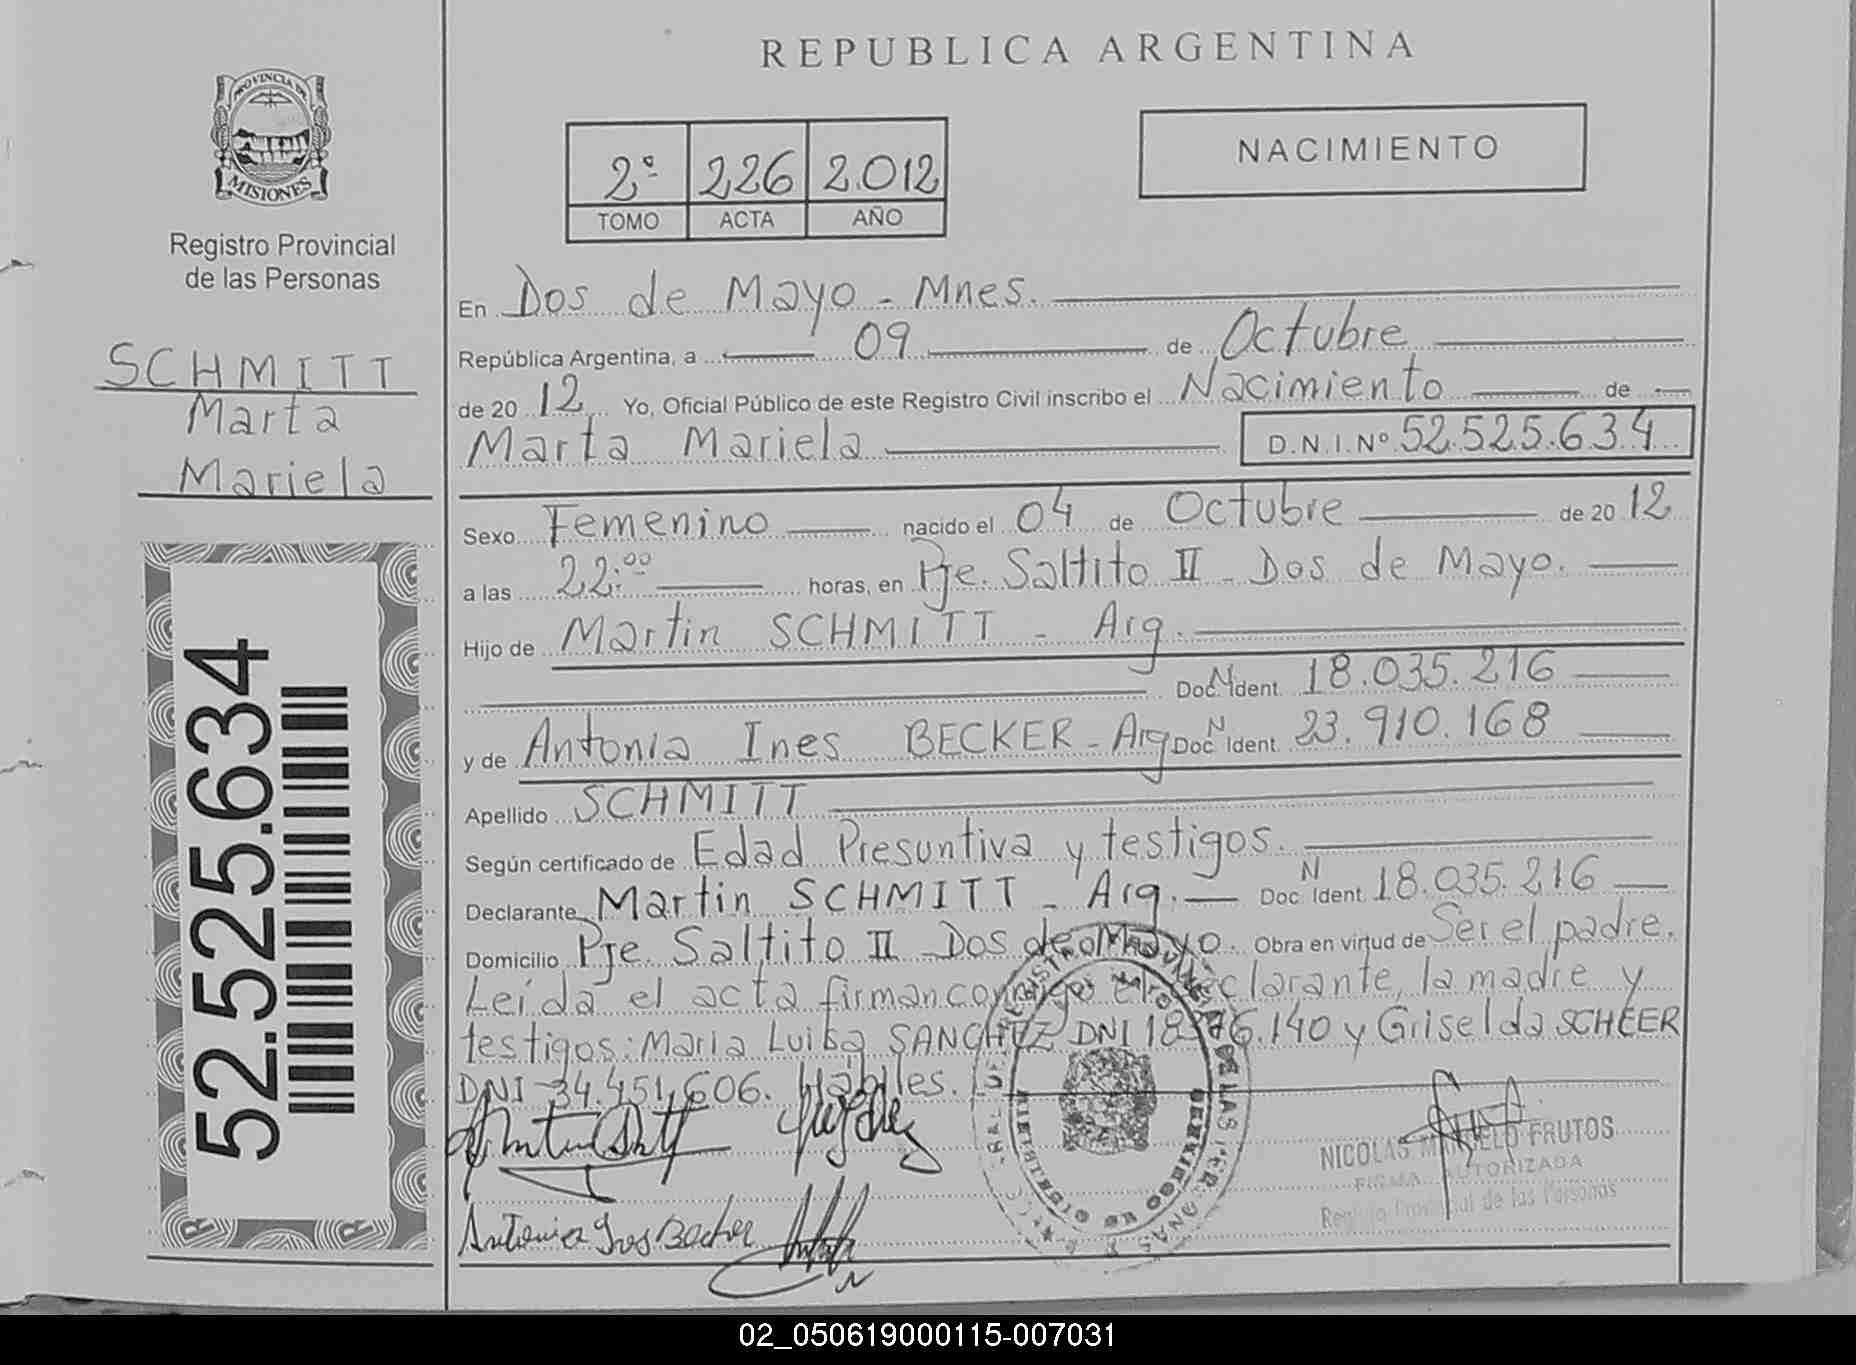 REPUBLICA ARGENTINA
PROVINCIA DE
MISIONES
Registro Provincial
de las Personas
SCHMITT
Marta
Mariela
52.525.634
2º 226 2.012
TOMO ACTA AÑO
NACIMIENTO
En Dos de Mayo - Mnes.
República Argentina, a 09 de Octubre
de 20 12 Yo, Oficial Público de este Registro Civil inscribo el Nacimiento de
Marta Mariela D.N.I.Nº 52.525.634
Sexo Femenino nacido el 04 de Octubre de 20 12
a las 22:00 horas, en Pje. Saltito II - Dos de Mayo.
Hijo de Martin SCHMITT - Arg.
Doc. N Ident. 18.035.216
y de Antonia Ines BECKER - Arg Doc. N Ident. 23.910.168
Apellido SCHMITT
Según certificado de Edad Presuntiva y testigos.
Declarante Martin SCHMITT - Arg. Doc. N Ident. 18.035.216
Domicilio Pje. Saltito II - Dos de Mayo. Obra en virtud de Ser el padre.
Leída el acta firman conmigo el declarante, la madre y
testigos: Maria Luisa SANCHEZ DNI y Griselda SCHEER
DNI 34.451.606. Hábiles.
Antonia Ines Becker
NICOLAS MARCELO FRUTOS
FIRMA AUTORIZADA
Registro Provincial de las Personas
02_050619000115-007031